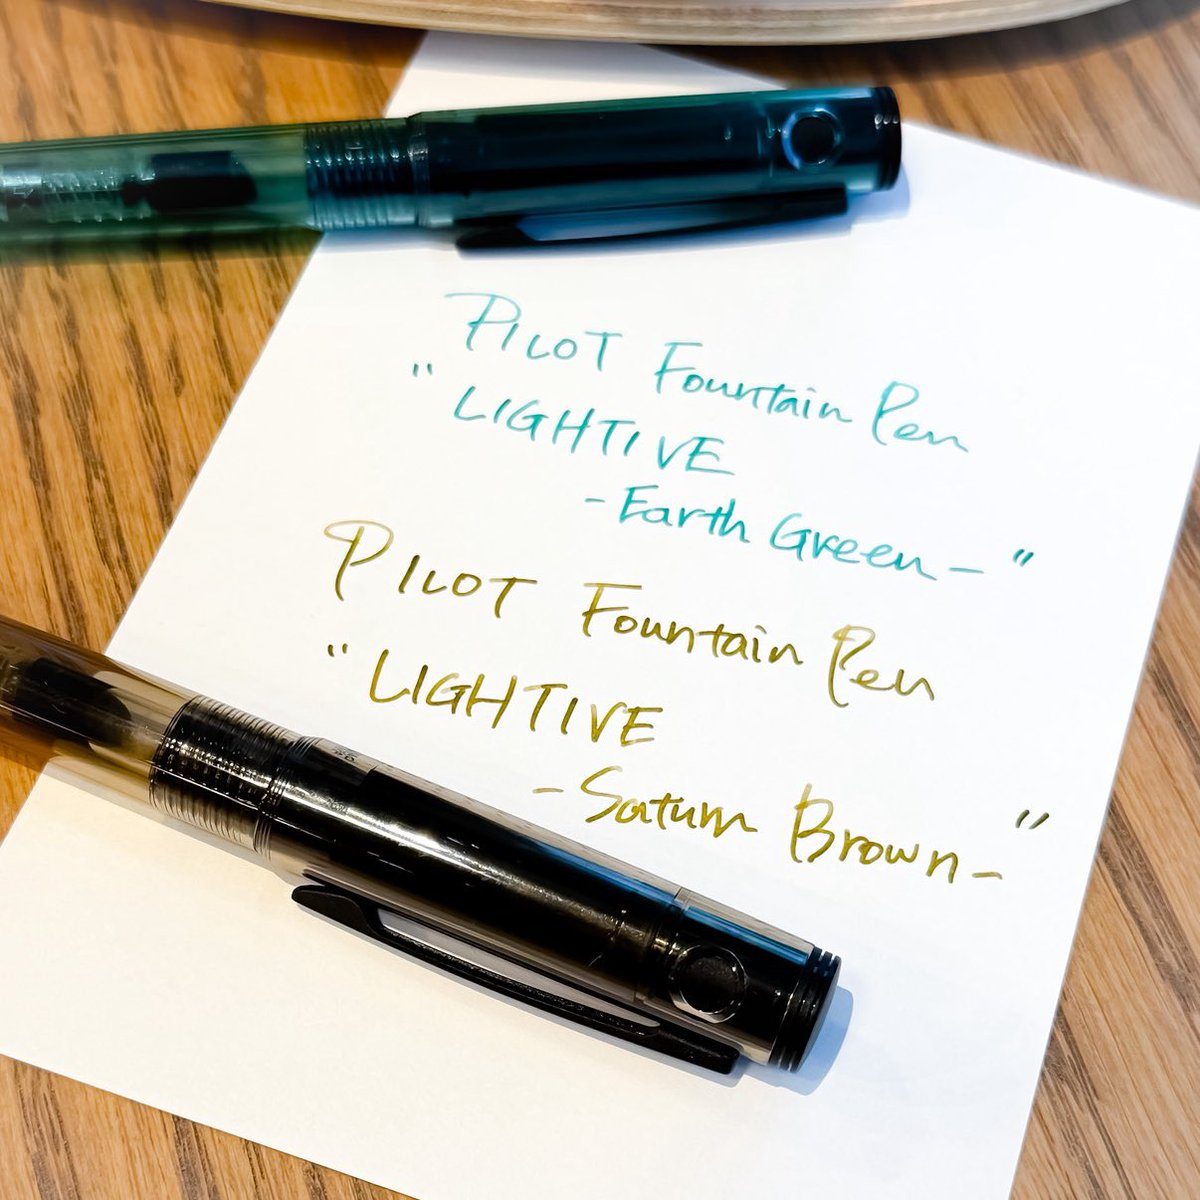 PILOT Fountain Pen
"LIGHTIVE
-Earth Green-"
PILOT Fountain Pen
"LIGHTIVE
-Saturn Brown-"